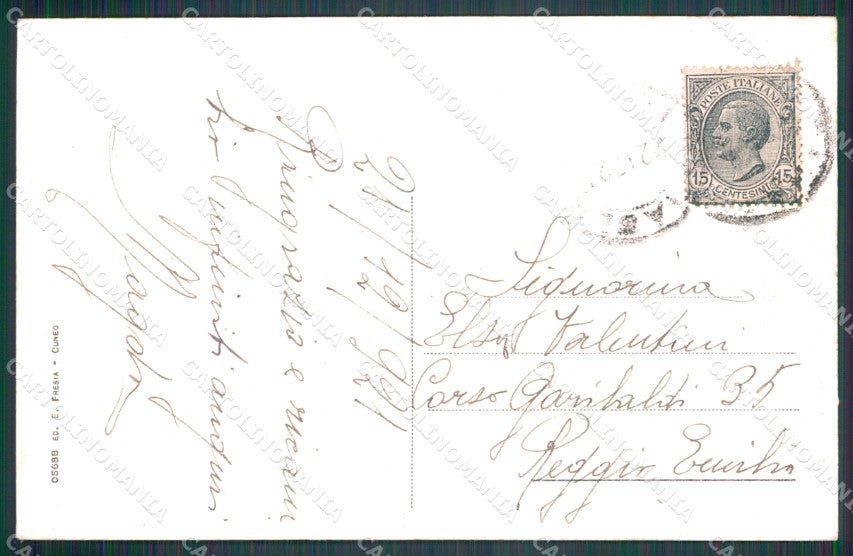 21/12/921
Ringrazio e ricam
bio infiniti auguri
Magda
05688 ED. E. FRESIA - CUNEO
POSTE ITALIANE
15 15
CENTESIMI
Signorina
Elsa Valentini
Corso Garibaldi 35
Reggio Emilia
CARTOLINOMANIA